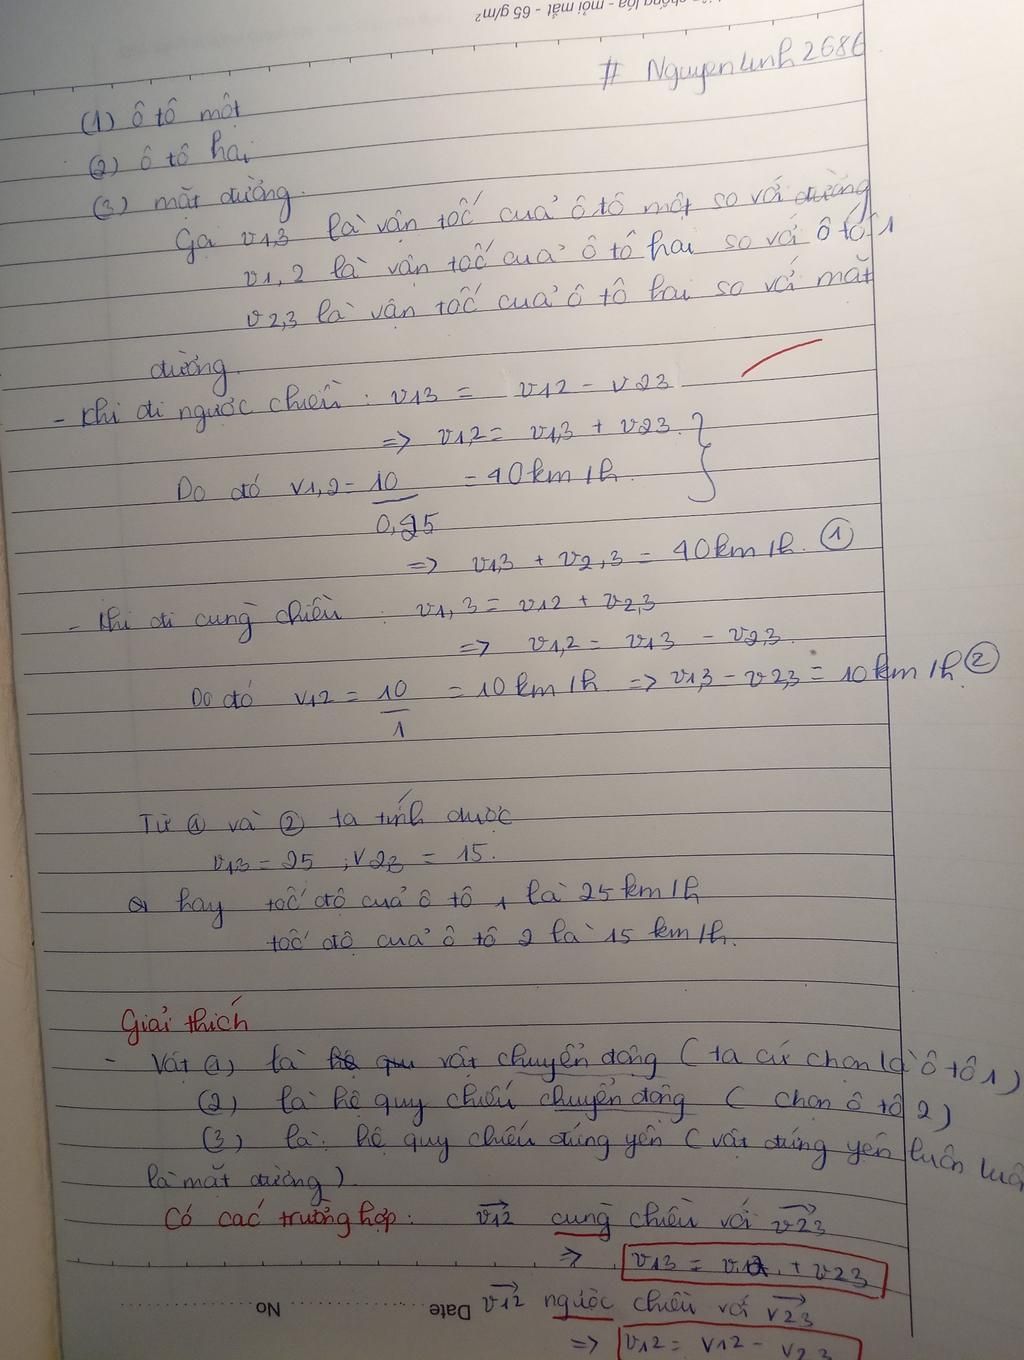 chống lóa - mỏi mắt - 65 g/m²
# Nguyenlinh2686
(1) ô tô một
(2) ô tô hai
(3) mặt đường.
Gọi v1,3 là vận tốc của ô tô một so với đường
v1,2 là vận tốc của ô tô hai so với ô tô 1
v2,3 là vận tốc của ô tô hai so với mặt
đường.
- Khi đi ngược chiều : v13 = v12 - v23
=> v1,2 = v1,3 + v23.
Do đó v1,2 = 10/0,25 = 40km/h.
=> v1,3 + v2,3 = 40km/h. ①
- Khi đi cùng chiều : v1,3 = v12 + v2,3
=> v1,2 = v13 - v2,3.
Do đó v12 = 10/1 = 10km/h => v1,3 - v2,3 = 10km/h ②
Từ ① và ② ta tính được
v13 = 25 ; v23 = 15.
hay tốc độ của ô tô 1 là 25km/h
tốc độ của ô tô 2 là 15km/h.
Giải thích
- Vật (1) là vật chuyển động (ta cứ chọn là ô tô 1)
(2) là hệ quy chiếu chuyển động (chọn ô tô 2)
(3) là: hệ quy chiếu đứng yên (vật đứng yên luôn
là mặt đường)
Có các trường hợp: v12 cùng chiều với v23
=> v13 = v12 + v23
v12 ngược chiều với v23
=> v12 = v12 - v23
Date No